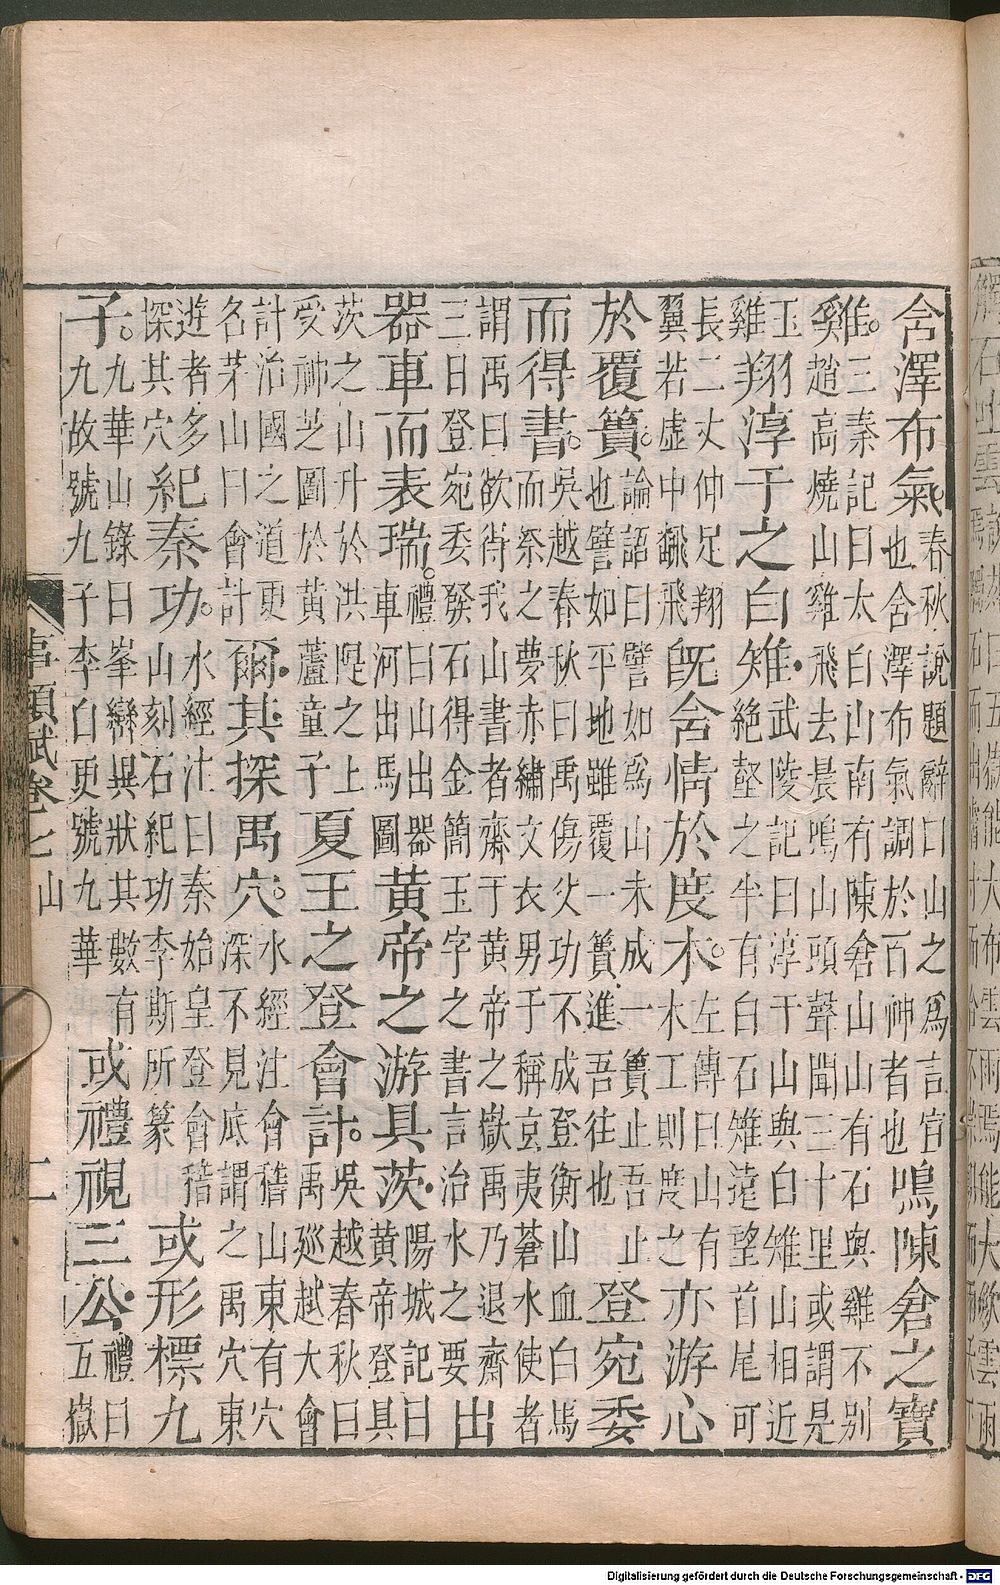 含澤布氣春秋說題辭曰山之為言宣也含澤布氣調於百神者也鳴陳倉之寶
雞三秦記曰太白山南有陳倉山山有石與雞不別趙高燒山雞飛去晨鳴山頭聲聞三十里或謂是
玉雞翔淳于之白雉武陵記曰淳于山與白雉山相近絕壑之半有白石雉遠望首尾可
長二丈伸足翔翼若虛中翻飛既含情於度木左傳曰山有木工則度之亦游心
於覆簣論語曰譬如為山未成一簣止吾止也譬如平地雖覆一簣進吾往也登宛委
而得書吳越春秋曰禹傷父功不成登衡山血白馬而祭之夢赤繡文衣男子稱玄夷蒼水使者
謂禹曰欲得我山書者齋于黃帝之嶽禹乃退齋三日登宛委發石得金簡玉字之書言治水之要出
器車而表瑞禮曰山出器車河出馬圖黃帝之游具茨陽城記曰黃帝登具
茨之山升於洪隄之上受神芝圖於黃蘆童子夏王之登會計吳越春秋曰禹巡越大會
計治國之道更名茅山曰會計爾其探禹穴水經注會稽山東有穴深不見底謂之禹穴東
遊者多探其穴紀秦功水經注曰秦始皇登會稽山刻石紀功李斯所篆或形標九
子九華山錄曰峯巒異狀其數有九故號九子李白更號九華或禮視三公禮曰五嶽
事類賦卷七 山 二
Digitalisierung gefördert durch die Deutsche Forschungsgemeinschaft - DFG